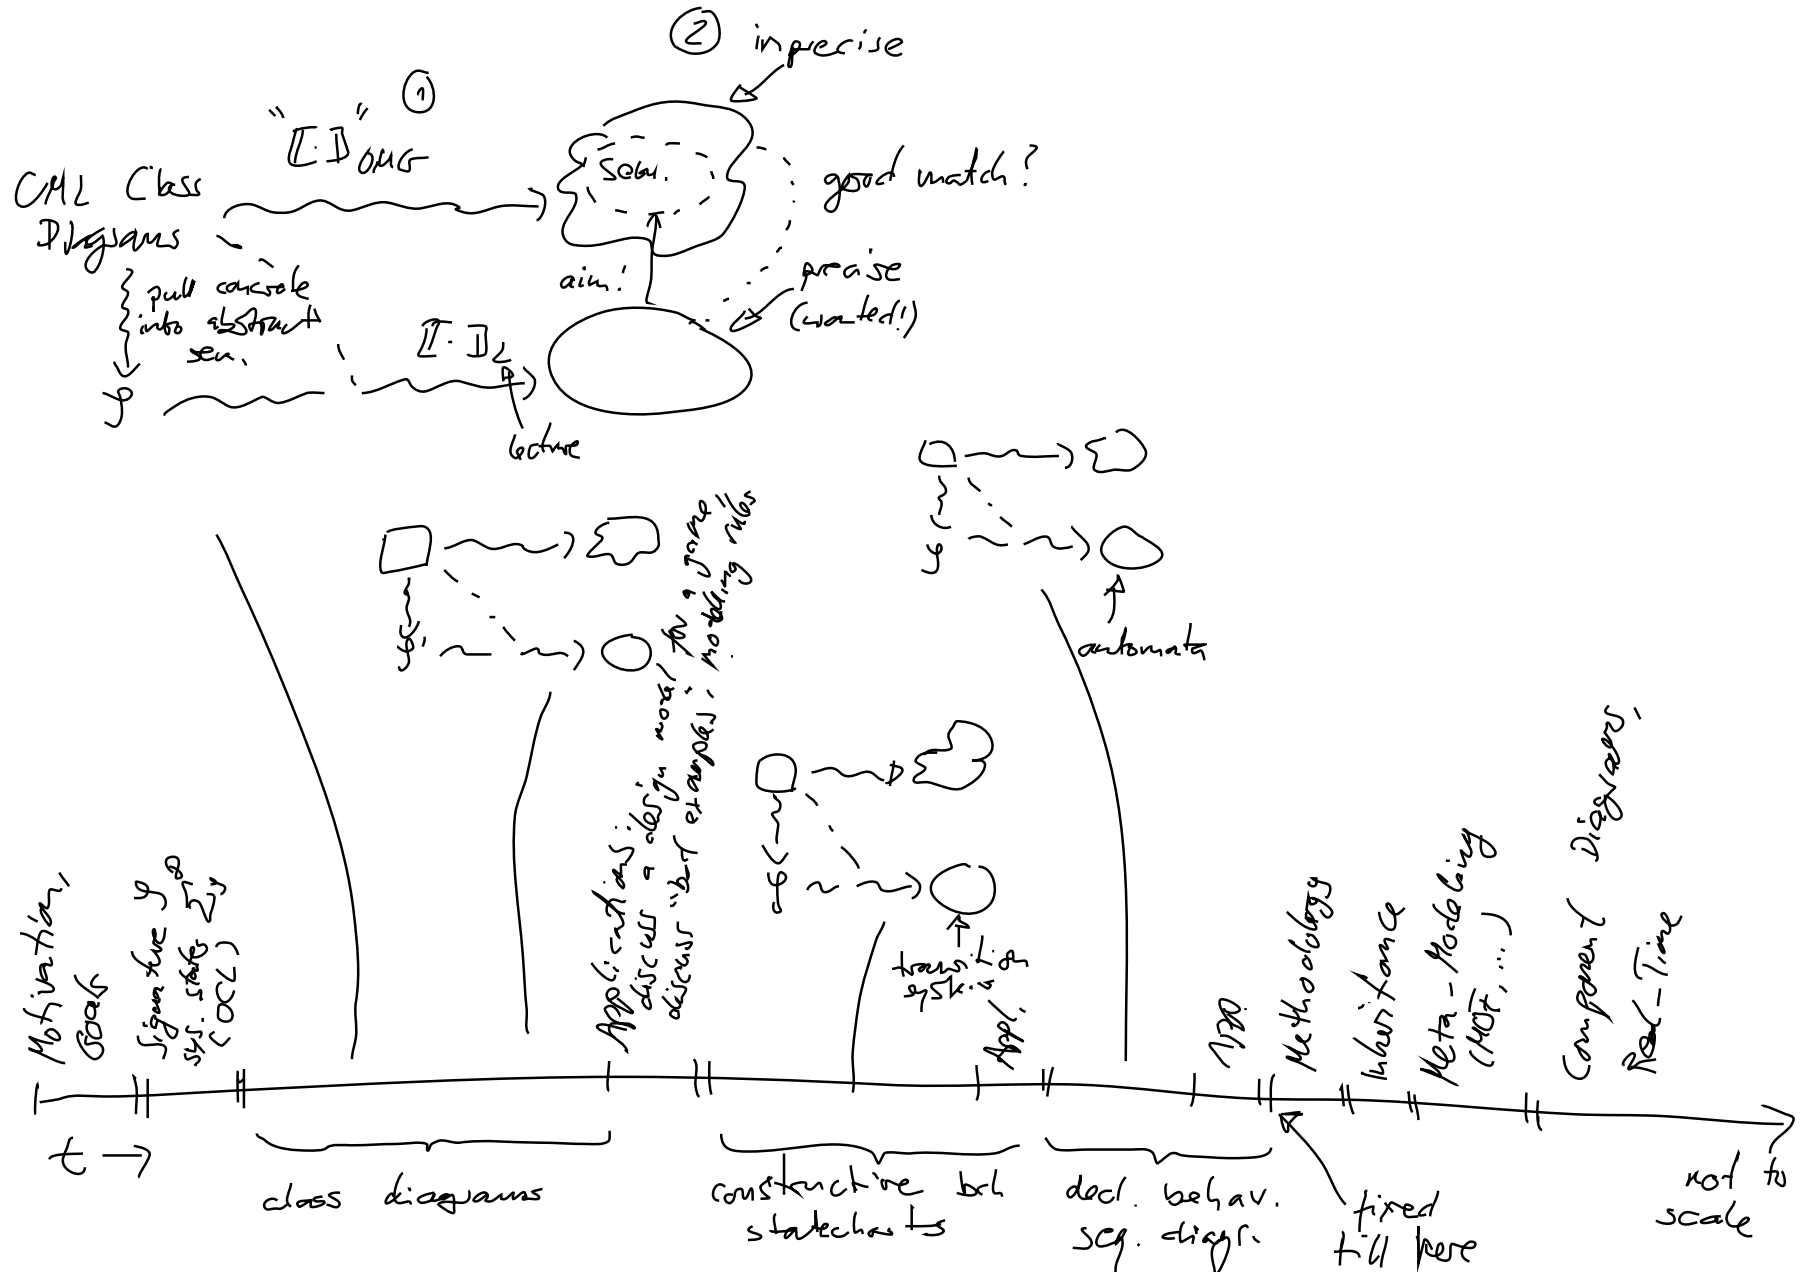 ② imprecise
①
"⟦·⟧"OMG
UML Class
Diagrams
sem.
good match?
aim!
precise
(wanted!)
pull concrete
into abstract
sem.
⟦·⟧L
𝒮
lecture
𝒮
automata
𝒮
𝒮
transition
system
Motivation,
Goals
Signature 𝒮
sys. states Σ𝒮
(OCL)
Applications:
discuss a design model for a game
discuss "bad" examples; modelling rules
Appl.
Methodology
Inheritance
Meta-Modeling
(MOF, ...)
Component Diagrams,
Real-Time
t →
class diagrams
constructive beh
statecharts
decl. behav.
seq. diagr.
fixed
till here
not to
scale